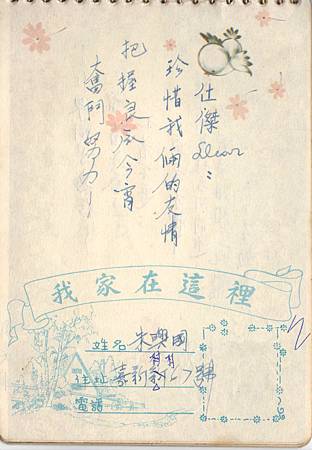 仕傑 Dear:
珍惜我倆的友情
把握良辰今宵
奮鬥努力!
我家在這裡
姓名 朱興國
住址 嘉新村27號
電話